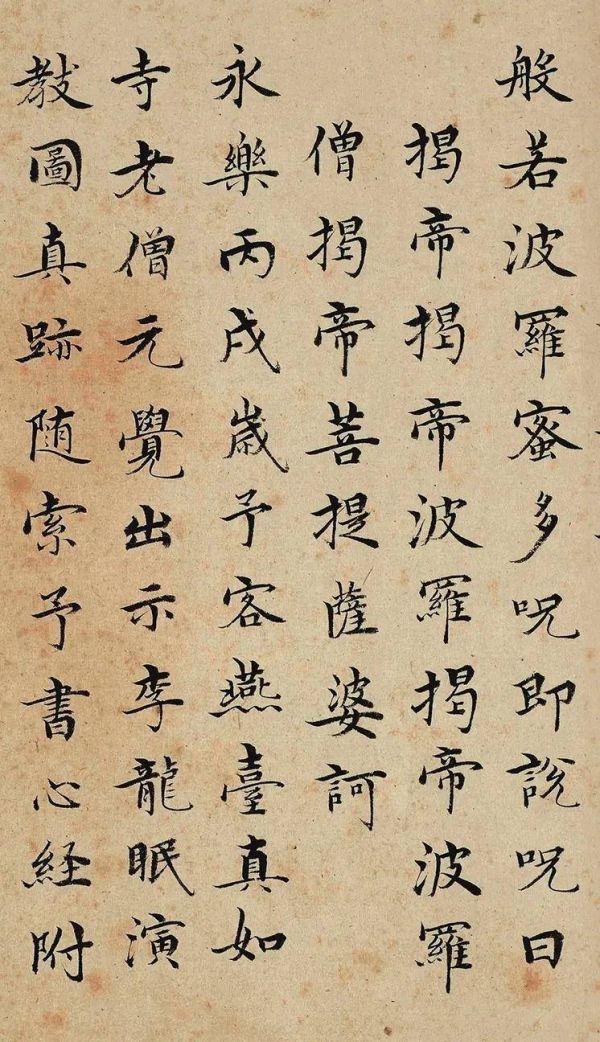 般若波羅蜜多呪即說呪曰
揭帝揭帝波羅揭帝波羅
僧揭帝菩提薩婆訶
永樂丙戌歲予客燕臺真如
寺老僧元覺出示李龍眠演
教圖真跡随索予書心経附